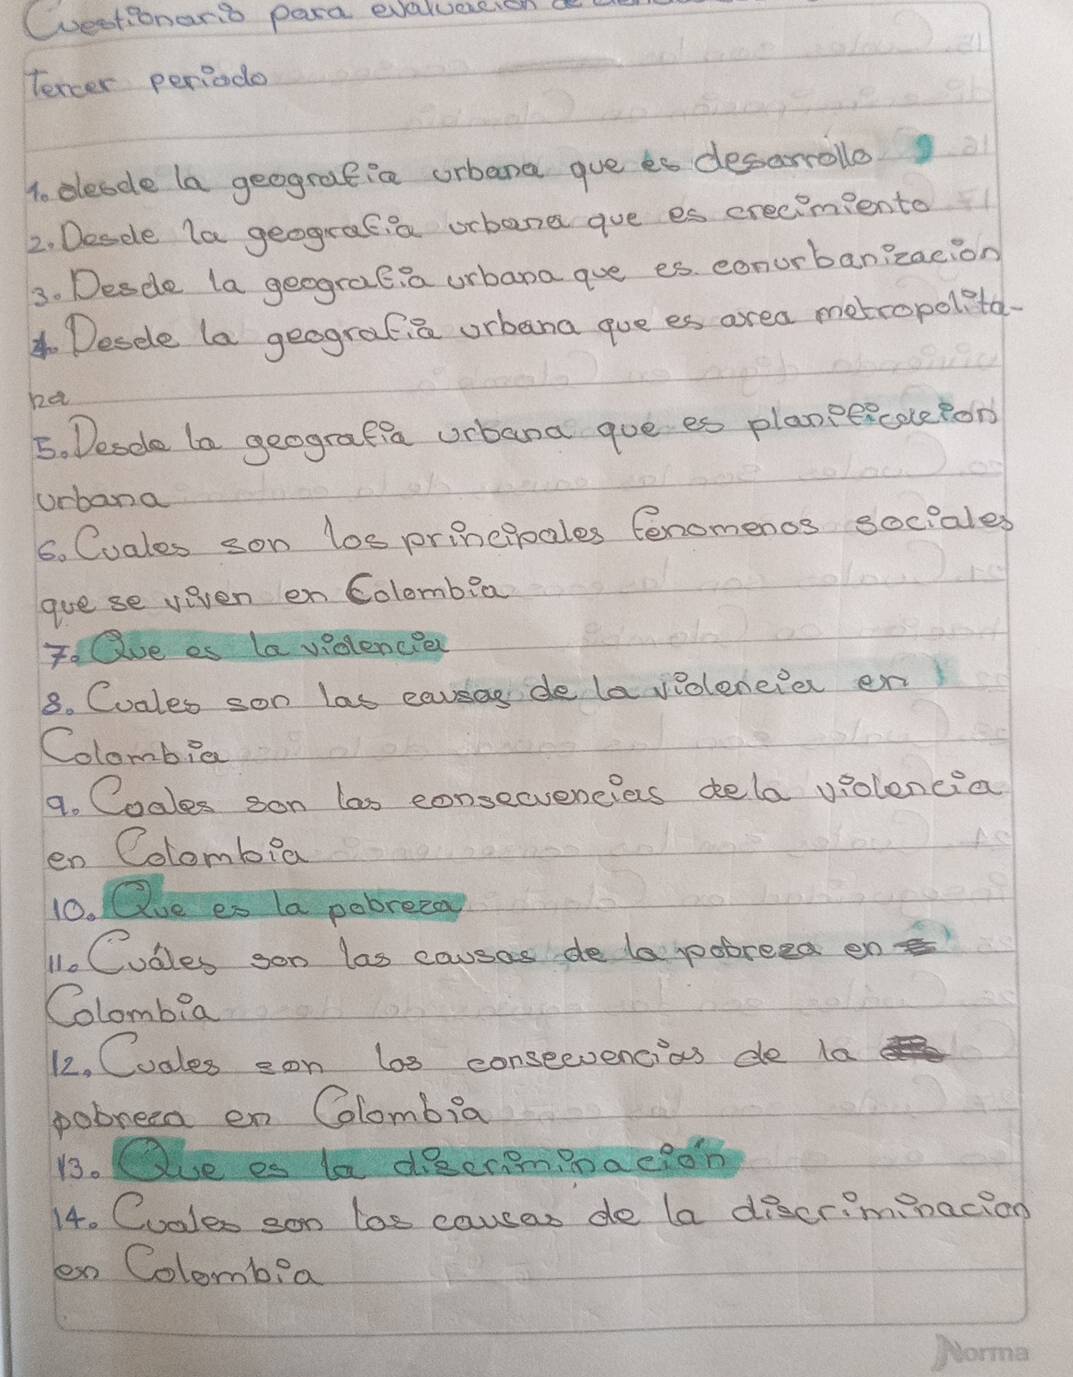 Cuestionario para evaluacion de
Tercer periodo
1. desde la geografia urbana que es desarrollo
2. Desde la geografia urbana que es crecimiento
3. Desde la geografia urbana que es conurbanizacion
4. Desde la geografia urbana que es area metropolita-
na
5. Desde la geografia urbana que es planificacion
urbana
6. Cuales son los principales fenomenos sociales
que se viven en Colombia
7. Que es la violencia
8. Cuales son las causas de la violencia en
Colombia
9. Coales son las consecuencias de la violencia
en Colombia
10. Que es la pobreza
11. Cuáles son las causas de la pobreza en
Colombia
12. Cuales son las consecuencias de la
pobreza en Colombia
13. Que es la discriminación
14. Cuales son las causas de la discriminacion
en Colombia
Norma